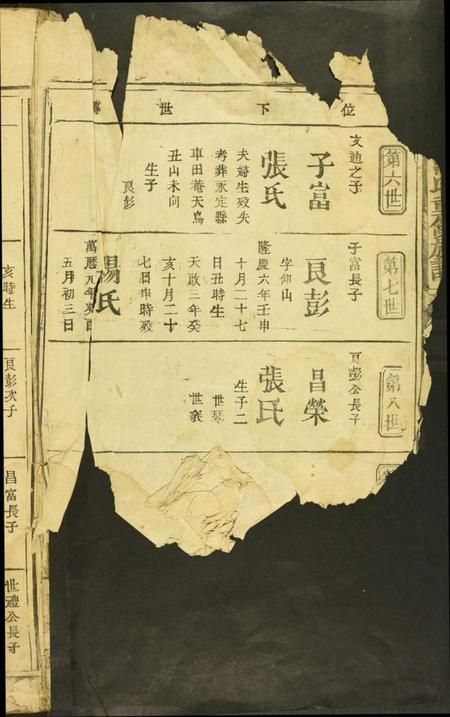 位下世傳
第六世
文迪之子
子富
張氏
夫婦生歿失
考葬永定縣
車田菴天鳥
丑山未向
生子
良彭
第七世
子富長子
良彭
字仰山
隆慶六年壬申
十月二十七
日丑時生
天啟三年癸
亥十月二十
七日申時歿
楊氏
萬曆九年辛酉
五月初三日
第八世
良彭公長子
昌榮
張氏
生子二
世琴
世袞
亥時生
良彭次子
昌富長子
世禮公長子